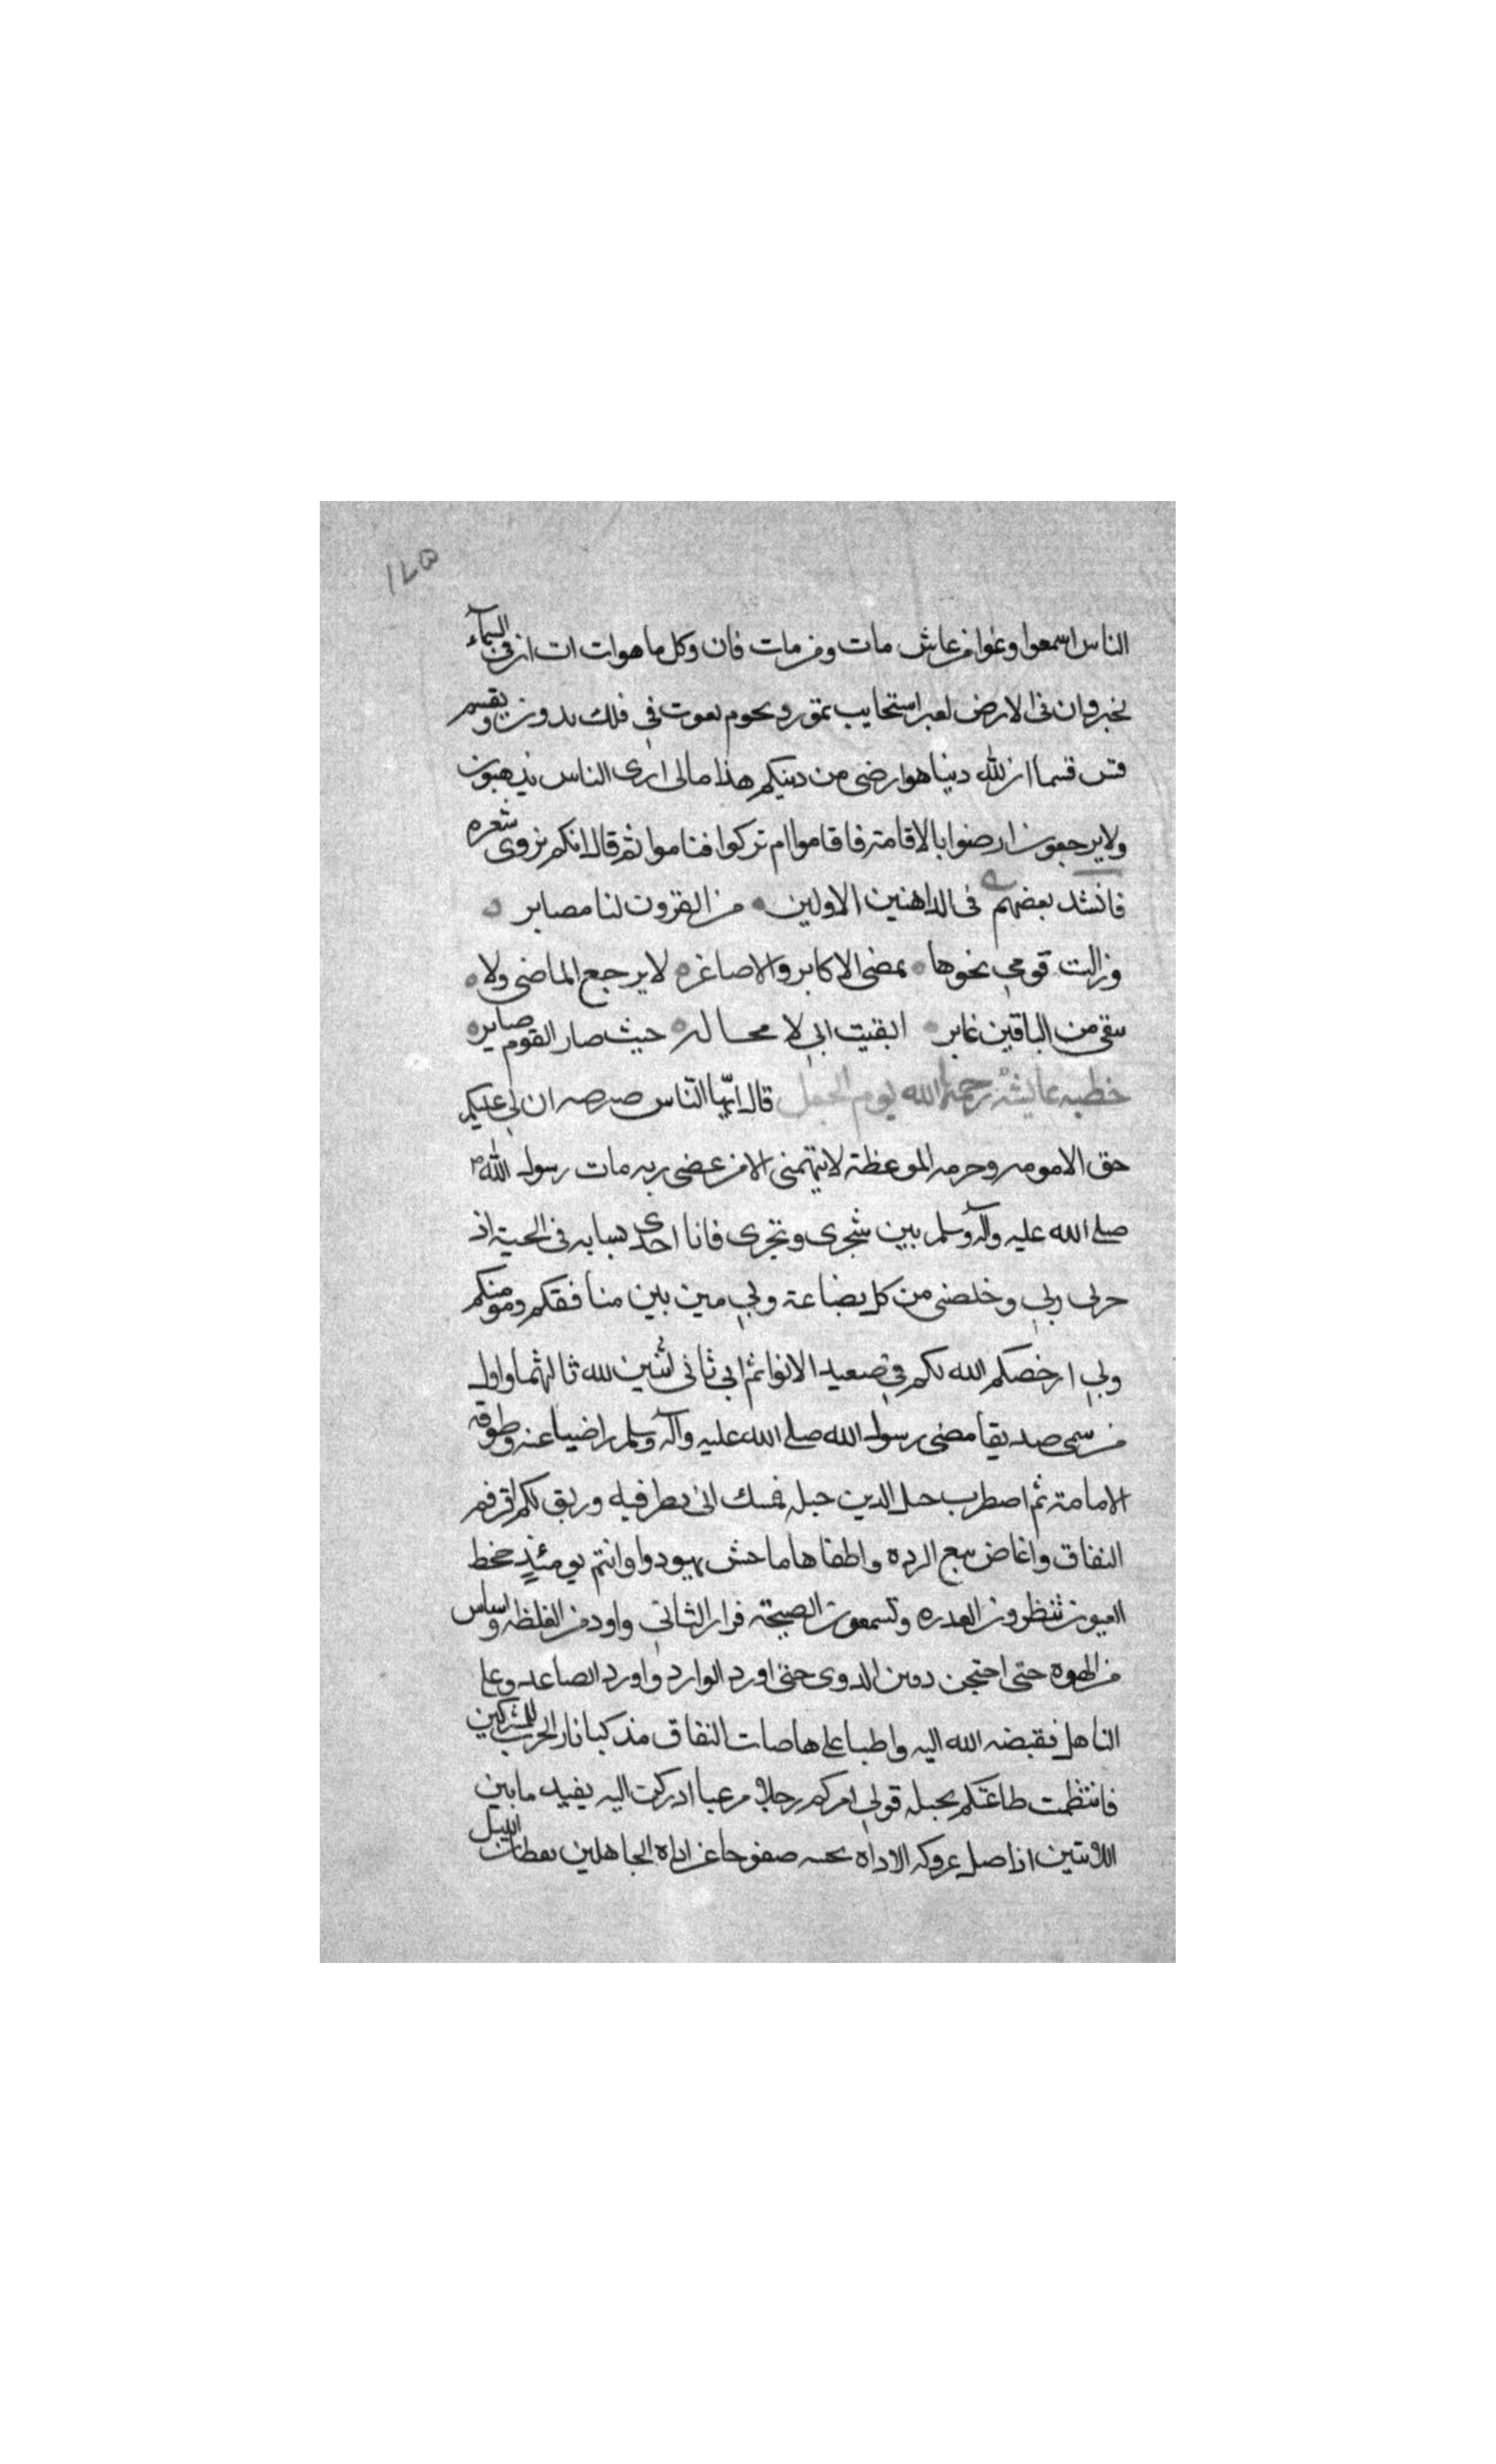 ١٤٥
الناس اسمعوا وعوا من عاش مات ومن مات فات وكل ما هو ات ات ان في السماء
لخبر وان في الارض لعبر استحايب تمور ونجوم تغوت في فلك يدور ويقسم
قس قسما ان لله دينا هو ارضى من دينكم هذا مالى ارى الناس يذهبون
ولا يرجعون ارضوا بالاقامة فاقاموا ام تركوا فناموا ثم قال انكم يروى شعره
فانشد بعضهم في الداهبين الاولين من القرون لنا مصاير
وزالت قومي نحوها يمضى الاكابر والاصاغر لا يرجع الماضى ولا
يبقى من الباقين غابر ايقنت اني لا محاله حيث صار القوم صاير
خطبه عايشة رحمها الله يوم الجمل قال ايها الناس صه صه ان لي عليكم
حق الامومه وحرمه الموعظة لا يتهمنى الا من عصى ربه مات رسول الله
صلى الله عليه وآله وسلم بين سحرى ونحرى فانا احدى نسايه في الجنة اذ
ربي وخلصنى من كل بضاعة وبي ميز بين منافقكم ومومنكم
وبي ارخصكم الله لكم في صعيد الابوا ثم ابي ثاني اثنين لله ثالثهما واول
من سمى صديقا مضى رسول الله صلى الله عليه وآله وسلم راضيا عنه وطوقه
الامامة ثم اضطرب حبل الدين حبله فمسك ابي بطرفيه وربق لكم
النفاق واغاض نبع الرده واطفا ها ما حش يهودوا وانتم يومئذ جحظ
العيون تنظرون الغدره وتسمعون الصيحة فرار الثاني واود من الغلظه
من الهوة حتى احتجن دفين الدوى حتى اورد الوارد واورد الصاعد وعل
الناهل فقبضه الله اليه واطيا على هامات النفاق مذكيا نار الحرب للمشركين
فانتظمت طاعتكم بحبله فولى امركم رجلا مرعيا اذ ركن اليه بعيد ما بين
اللابتين اذا ضل عروكه الاداة بجنبه صفوحا عن اداة الجاهلين يقظان الليل